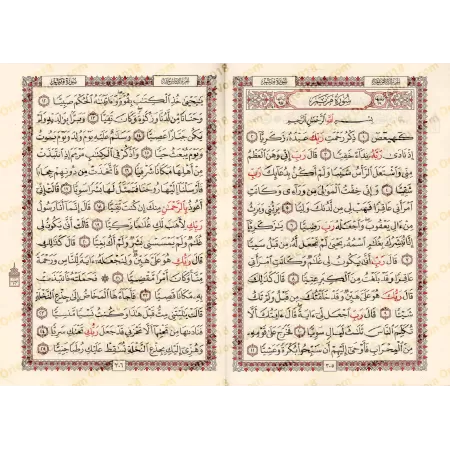 الجزء السادس عشر
سورة مريم
سُورَةُ مَرْيَمَ
بِسْمِ ٱللَّهِ ٱلرَّحْمَٰنِ ٱلرَّحِيمِ
كٓهيعٓصٓ ١ ذِكْرُ رَحْمَتِ رَبِّكَ عَبْدَهُۥ زَكَرِيَّآ ٢
إِذْ نَادَىٰ رَبَّهُۥ نِدَآءً خَفِيًّا ٣ قَالَ رَبِّ إِنِّى وَهَنَ ٱلْعَظْمُ
مِنِّى وَٱشْتَعَلَ ٱلرَّأْسُ شَيْبًا وَلَمْ أَكُنۢ بِدُعَآئِكَ رَبِّ
شَقِيًّا ٤ وَإِنِّى خِفْتُ ٱلْمَوَٰلِىَ مِن وَرَآءِى وَكَانَتِ
ٱمْرَأَتِى عَاقِرًا فَهَبْ لِى مِن لَّدُنكَ وَلِيًّا ٥ يَرِثُنِى وَيَرِثُ
مِنْ ءَالِ يَعْقُوبَ وَٱجْعَلْهُ رَبِّ رَضِيًّا ٦ يَٰزَكَرِيَّآ
إِنَّا نُبَشِّرُكَ بِغُلَٰمٍ ٱسْمُهُۥ يَحْيَىٰ لَمْ نَجْعَل لَّهُۥ مِن قَبْلُ سَمِيًّا ٧
قَالَ رَبِّ أَنَّىٰ يَكُونُ لِى غُلَٰمٌ وَكَانَتِ ٱمْرَأَتِى
عَاقِرًا وَقَدْ بَلَغْتُ مِنَ ٱلْكِبَرِ عِتِيًّا ٨ قَالَ كَذَٰلِكَ
قَالَ رَبُّكَ هُوَ عَلَىَّ هَيِّنٌ وَقَدْ خَلَقْتُكَ مِن قَبْلُ وَلَمْ تَكُ
شَيْـًٔا ٩ قَالَ رَبِّ ٱجْعَل لِّىٓ ءَايَةً قَالَ ءَايَتُكَ أَلَّا
تُكَلِّمَ ٱلنَّاسَ ثَلَٰثَ لَيَالٍ سَوِيًّا ١٠ فَخَرَجَ عَلَىٰ قَوْمِهِۦ
مِنَ ٱلْمِحْرَابِ فَأَوْحَىٰٓ إِلَيْهِمْ أَن سَبِّحُوا۟ بُكْرَةً وَعَشِيًّا ١١
٣٠٥
الجزء السادس عشر
سورة مريم
يَٰيَحْيَىٰ خُذِ ٱلْكِتَٰبَ بِقُوَّةٍ وَءَاتَيْنَٰهُ ٱلْحُكْمَ صَبِيًّا ١٢
وَحَنَانًا مِّن لَّدُنَّا وَزَكَوٰةً وَكَانَ تَقِيًّا ١٣ وَبَرًّۢا بِوَٰلِدَيْهِ وَلَمْ
يَكُن جَبَّارًا عَصِيًّا ١٤ وَسَلَٰمٌ عَلَيْهِ يَوْمَ وُلِدَ وَيَوْمَ يَمُوتُ
وَيَوْمَ يُبْعَثُ حَيًّا ١٥ وَٱذْكُرْ فِى ٱلْكِتَٰبِ مَرْيَمَ إِذِ ٱنتَبَذَتْ
مِنْ أَهْلِهَا مَكَانًا شَرْقِيًّا ١٦ فَٱتَّخَذَتْ مِن دُونِهِمْ حِجَابًا
فَأَرْسَلْنَآ إِلَيْهَا رُوحَنَا فَتَمَثَّلَ لَهَا بَشَرًا سَوِيًّا ١٧ قَالَتْ إِنِّىٓ
أَعُوذُ بِٱلرَّحْمَٰنِ مِنكَ إِن كُنتَ تَقِيًّا ١٨ قَالَ إِنَّمَآ أَنَا۠ رَسُولُ
رَبِّكِ لِأَهَبَ لَكِ غُلَٰمًا زَكِيًّا ١٩ قَالَتْ أَنَّىٰ يَكُونُ لِى
غُلَٰمٌ وَلَمْ يَمْسَسْنِى بَشَرٌ وَلَمْ أَكُ بَغِيًّا ٢٠ قَالَ كَذَٰلِكِ
قَالَ رَبُّكِ هُوَ عَلَىَّ هَيِّنٌ وَلِنَجْعَلَهُۥٓ ءَايَةً لِّلنَّاسِ وَرَحْمَةً
مِّنَّا وَكَانَ أَمْرًا مَّقْضِيًّا ٢١ فَحَمَلَتْهُ فَٱنتَبَذَتْ
بِهِۦ مَكَانًا قَصِيًّا ٢٢ فَأَجَآءَهَا ٱلْمَخَاضُ إِلَىٰ جِذْعِ ٱلنَّخْلَةِ
قَالَتْ يَٰلَيْتَنِى مِتُّ قَبْلَ هَٰذَا وَكُنتُ نَسْيًا مَّنسِيًّا ٢٣
فَنَادَىٰهَا مِن تَحْتِهَآ أَلَّا تَحْزَنِى قَدْ جَعَلَ رَبُّكِ تَحْتَكِ سَرِيًّا ٢٤
وَهُزِّىٓ إِلَيْكِ بِجِذْعِ ٱلنَّخْلَةِ تُسَٰقِطْ عَلَيْكِ رُطَبًا جَنِيًّا ٢٥
٣٠٦